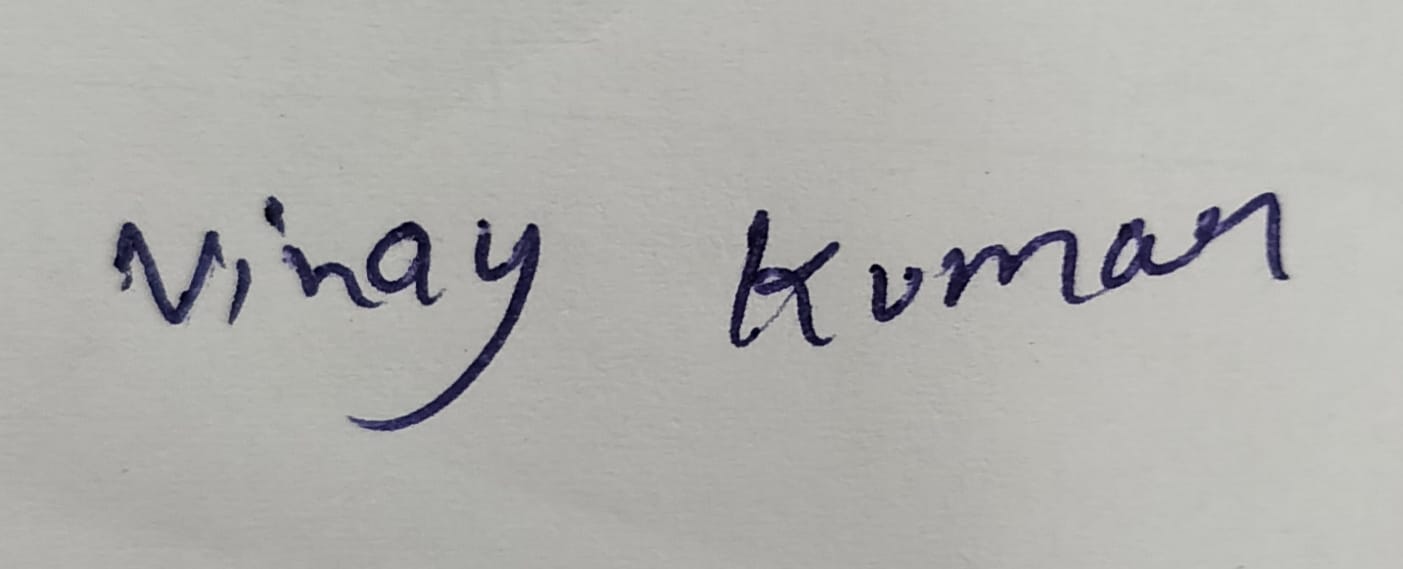 Vinay Kumar